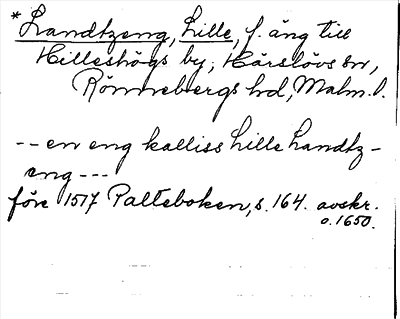 * Landtzeng, Lille, f. äng till
Hilleshögs by, Härslövs sn,
Rönnebergs hd, Malm. l.
-- en eng kalliss Lille Landtz-
eng ---
före 1517 Palteboken, s. 164. avskr.
o. 1650.